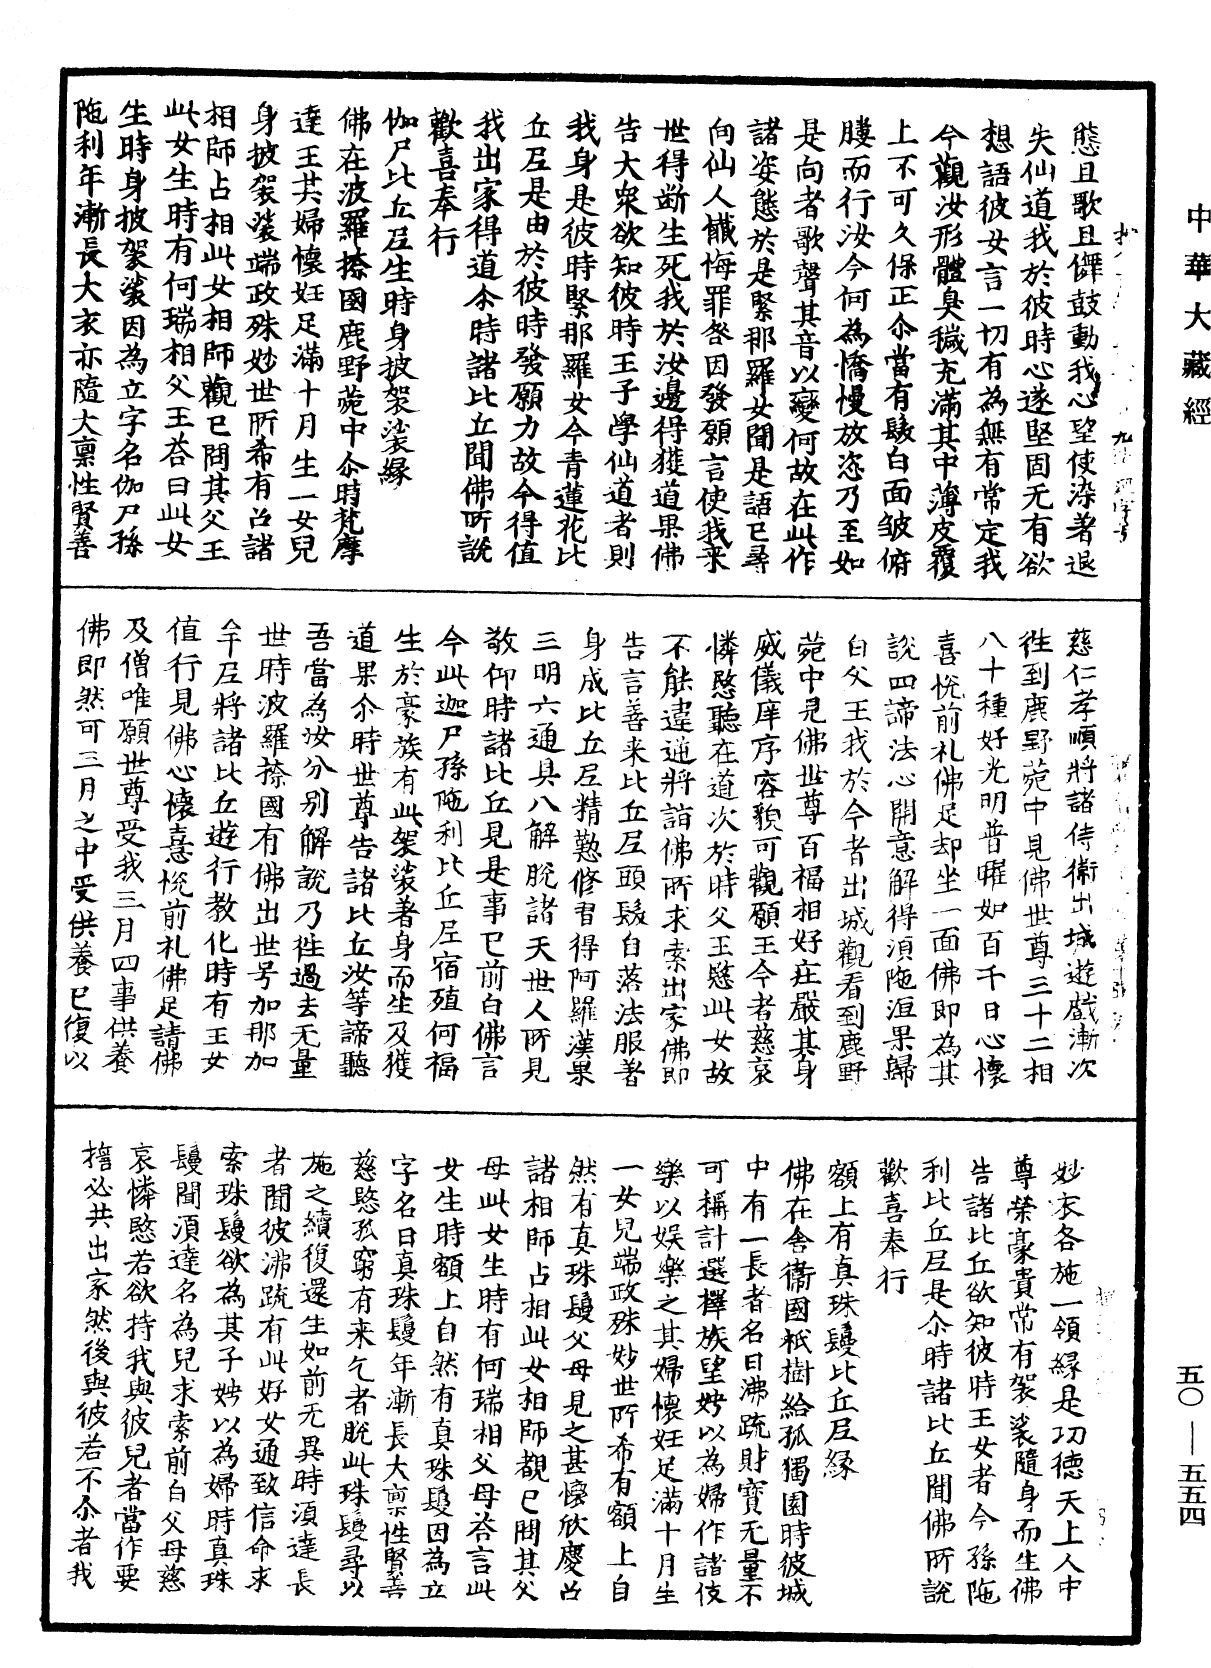 中華大藏經
態且歌且儛鼓動我心望使染著退
失仙道我於彼時心遂堅固无有欲
想語彼女言一切有為無有常定我
今觀汝形體臭穢充滿其中薄皮覆
上不可久保正尒當有髮白面皺俯
膢而行汝今何為憍慢放恣乃至如
是向者歌聲其音以變何故在此作
諸姿態於是緊那羅女聞是語已尋
向仙人懺悔罪咎因發願言使我来
世得斷生死我於汝邊得獲道果佛
告大衆欲知彼時王子學仙道者則
我身是彼時緊那羅女今青蓮花比
丘𡰱是由於彼時發願力故今得值
我出家得道尒時諸比丘聞佛所說
歡喜奉行
伽尸比丘𡰱生時身披袈裟緣
佛在波羅捺國鹿野菀中尒時梵摩
達王其婦懷妊足滿十月生一女兒
身披袈裟端政殊妙世所希有召諸
相師占相此女相師觀已問其父王
此女生時有何瑞相父王荅曰此女
生時身披袈裟因為立字名伽尸孫
陁利年漸長大衣亦隨大稟性賢善
慈仁孝順將諸侍衛出城遊戲漸次
往到鹿野菀中見佛世尊三十二相
八十種好光明普曜如百千日心懷
喜悅前礼佛足却坐一面佛即為其
說四諦法心開意解得湏陁洹果歸
白父王我於今者出城觀看到鹿野
菀中見佛世尊百福相好莊嚴其身
威儀庠序容貌可觀願王今者慈哀
憐愍聽在道次於時父王愍此女故
不能違逆將詣佛所求索出家佛即
告言善来比丘𡰱頭髮自落法服著
身成比丘𡰱精懃修習得阿羅漢果
三明六通具八解脫諸天世人所見
敬仰時諸比丘見是事已前白佛言
今此迦尸孫陁利比丘𡰱宿殖何福
生於豪族有此袈裟著身而生及獲
道果尒時世尊告諸比丘汝等諦聽
吾當為汝分別解說乃往過去无量
世時波羅捺國有佛出世号加那加
牟𡰱將諸比丘遊行教化時有王女
值行見佛心懷憙悅前礼佛足請佛
及僧唯願世尊受我三月四事供養
佛即然可三月之中受供養已復以
妙衣各施一領緣是功德天上人中
尊榮豪貴常有袈裟隨身而生佛
告諸比丘欲知彼時王女者今孫陁
利比丘𡰱是尒時諸比丘聞佛所說
歡喜奉行
額上有真珠鬘比丘𡰱緣
佛在舍衛國祇樹給孤獨園時彼城
中有一長者名曰沸䟽財寶无量不
可稱計選擇族望娉以為婦作諸伎
樂以娛樂之其婦懷妊足滿十月生
一女兒端政殊妙世所希有額上自
然有真珠鬘父母見之甚懷欣慶召
諸相師占相此女相師覩已問其父
母此女生時有何瑞相父母荅言此
女生時額上自然有真珠鬘因為立
字名曰真珠鬘年漸長大稟性賢善
慈愍孤窮有来乞者脫此珠鬘尋以
施之續復還生如前无異時湏達長
者聞彼沸䟽有此好女通致信命求
索珠鬘欲為其子娉以為婦時真珠
鬘聞湏達名為兒求索前白父母慈
哀憐愍若欲持我與彼兒者當作要
擔必共出家然後與彼若不尒者我
五〇—五五四